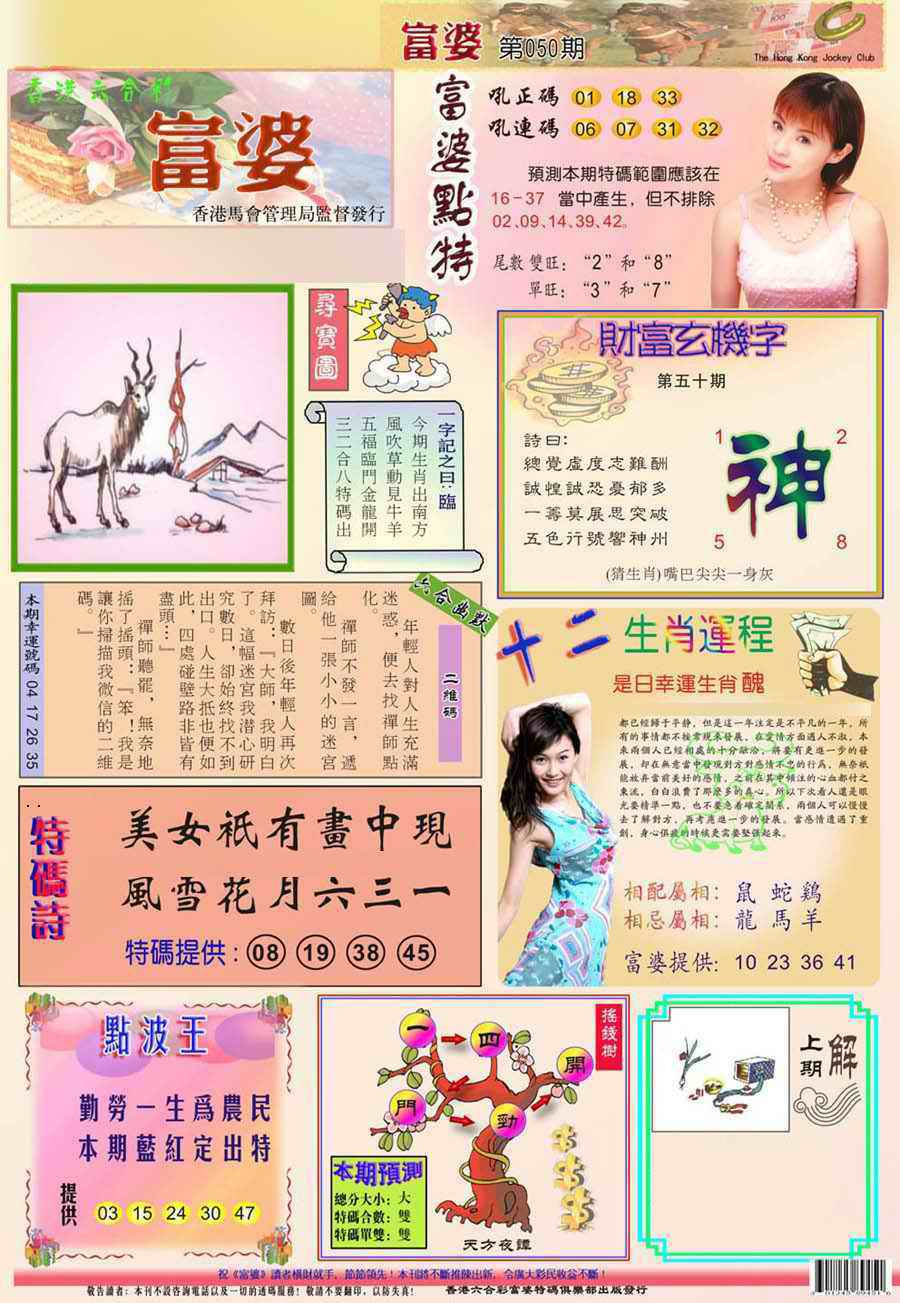 富婆 第050期
The Hong Kong Jockey Club
香港六合彩
富婆
香港馬會管理局監督發行
富婆點特
吼正碼 01 18 33
吼連碼 06 07 31 32
預測本期特碼範圍應該在
16－37 當中產生，但不排除
02、09、14、39、42。
尾數雙旺：“2”和“8”
單旺：“3”和“7”
尋寶圖
一字記之曰：臨
今期生肖出南方
風吹草動見牛羊
五福臨門金龍開
三二合八特碼出
財富玄機字
第五十期
詩曰：
總覺虛度志難酬
誠惶誠恐憂郁多
一籌莫展思突破
五色行號響神州
1 2
神
5 8
(猜生肖)嘴巴尖尖一身灰
六合幽默
二維碼
年輕人對人生充滿
迷惑，便去找禪師點
化。
禪師不發一言，遞
給他一張小小的迷宮
圖。
數日後年輕人再次
拜訪：『大師，我明白
了。這幅迷宮我潜心研
究數日，卻始終找不到
出口。人生大抵也便如
此，四處碰壁路非皆有
盡頭…』
禪師聽罷，無奈地
搖了搖頭：『笨！我是
讓你掃描我微信的二維
碼。』
本期幸運號碼 04 17 26 35
十二生肖運程
是日幸運生肖醜
都已經歸于平靜，但是這一年注定是不平凡的一年，所
有的事情都不按常規來發展，在愛情方面遇人不淑，本
來兩個人已經相處的十分融洽，將要有更進一步的發
展，却在無意當中發現對方對感情不忠的行為，無奈祇
能放弃當前美好的感情，之前在其中傾注的心血都付之
東流，白白浪費了那麼多的真心。所以下次看人還是眼
光要精準一點，也不要急着確定關系，兩個人可以慢慢
去了解對方，再考慮進一步的發展。當感情遭遇了重
創，身心俱疲的時候更需要堅强起來。
相配屬相：鼠 蛇 鷄
相忌屬相：龍 馬 羊
富婆提供：10 23 36 41
特碼詩
美女衹有畫中現
風雪花月六三一
特碼提供：08 19 38 45
點波王
勤勞一生爲農民
本期藍紅定出特
提供 03 15 24 30 47
搖錢樹
一 四
開
門 勁
本期預測
總分大小：大
特碼合數：雙
特碼單雙：雙
天方夜譚
上期
解
祝《富婆》讀者橫財就手，節節領先！本刊將不斷推陳出新，令廣大彩民收益不斷！
敬告讀者：本刊不設咨詢電話以及一切的透碼服務！敬請不要翻印，以防失真！ 香港六合彩富婆特碼俱樂部出版發行